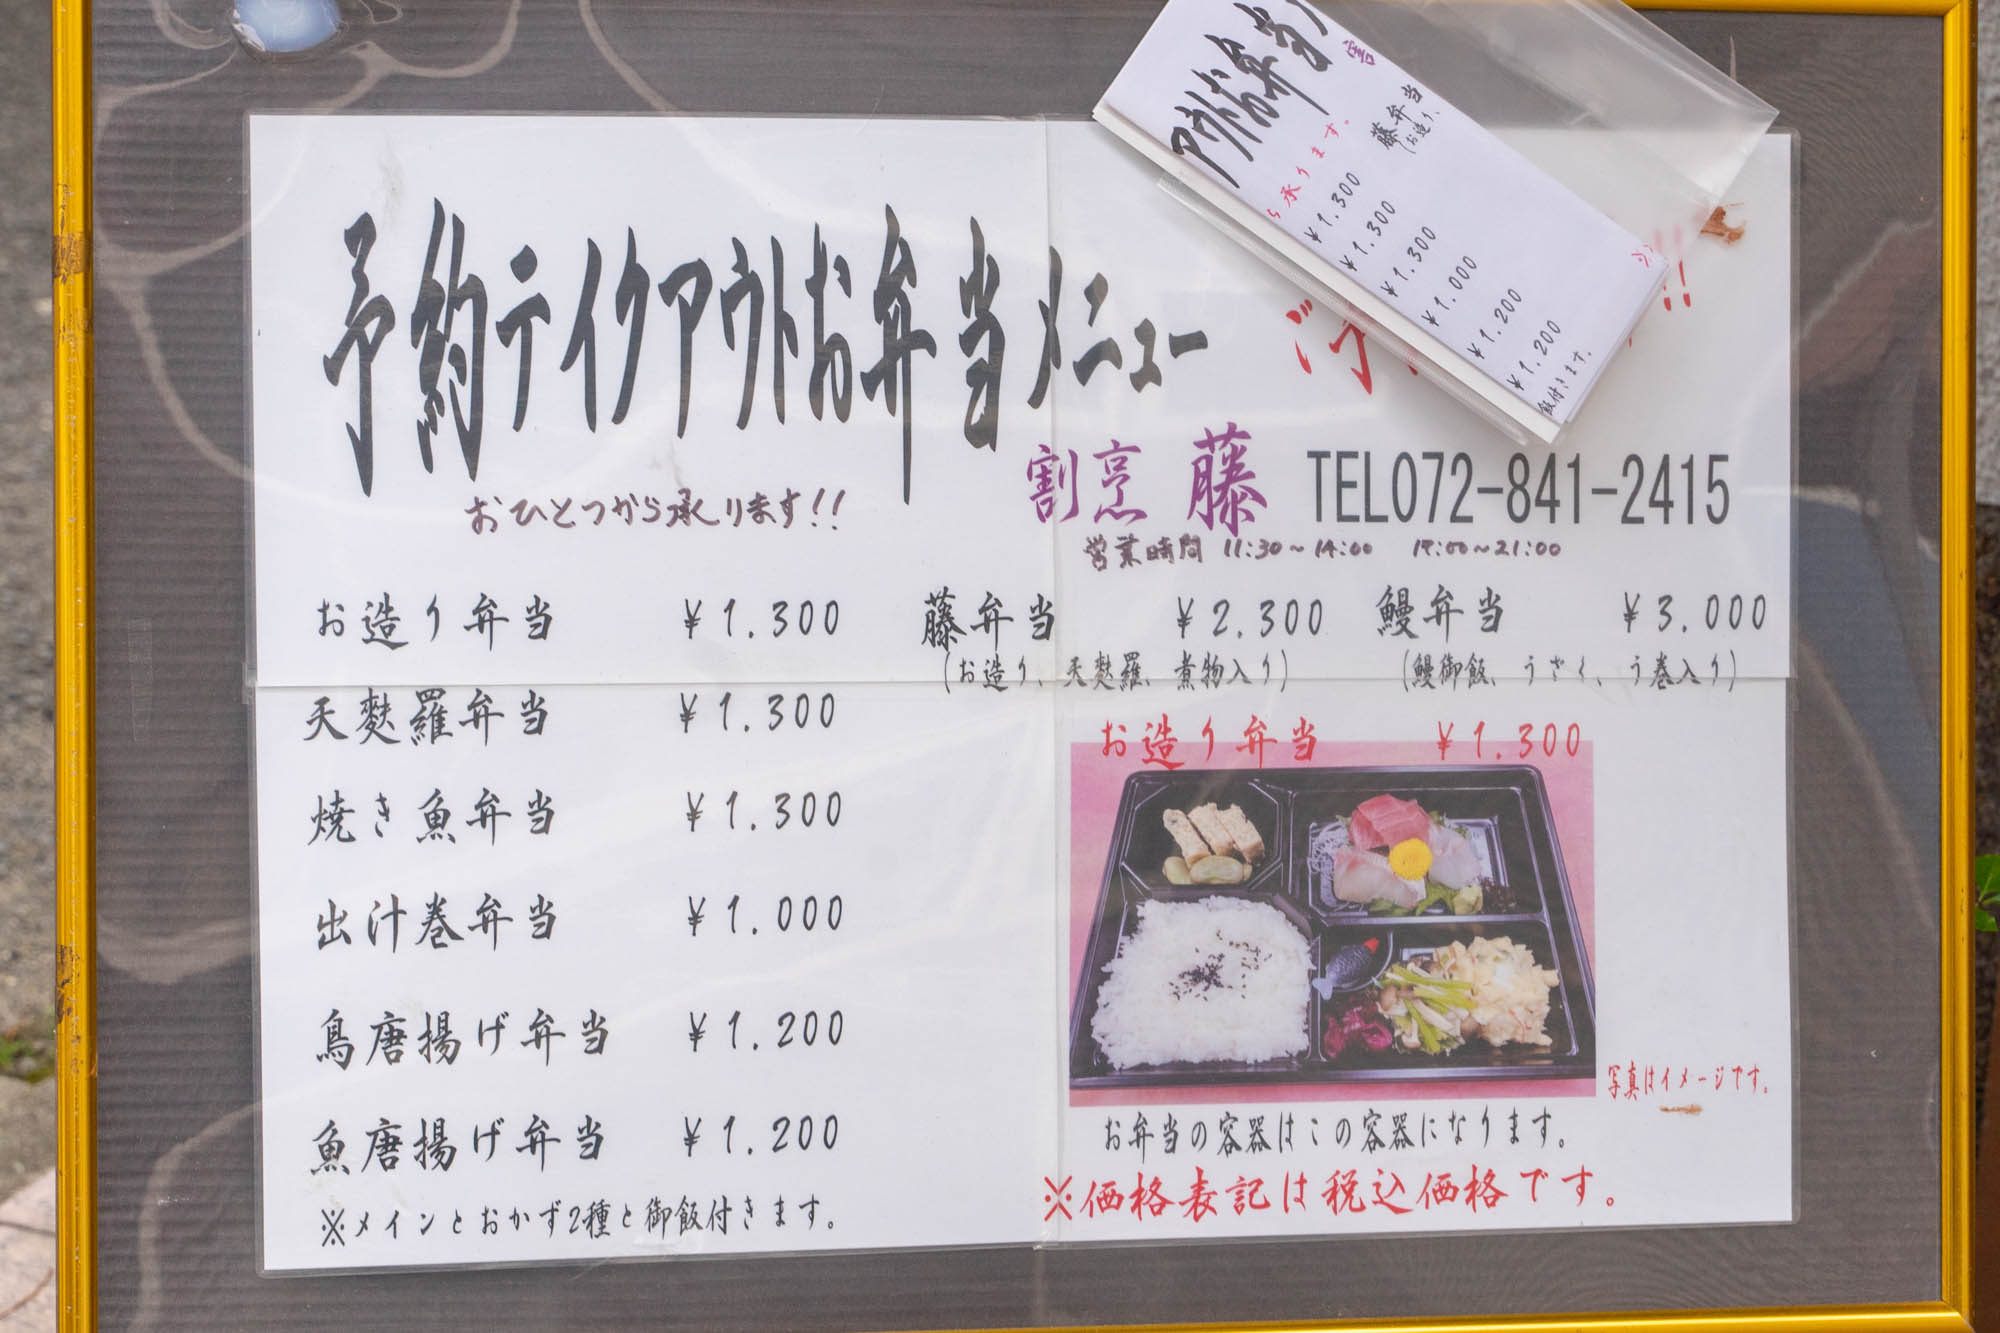 予約テイクアウトお弁当メニュー
おひとつから承ります!!
割烹 藤 TEL072-841-2415
営業時間 11:30～14:00 17:00～21:00
お造り弁当 ¥1.300
天麩羅弁当 ¥1.300
焼き魚弁当 ¥1.300
出汁巻弁当 ¥1.000
鳥唐揚げ弁当 ¥1.200
魚唐揚げ弁当 ¥1.200
※メインとおかず2種と御飯付きます。
藤弁当 ¥2.300
(お造り、天麩羅、煮物入り)
鰻弁当 ¥3.000
(鰻御飯、うざく、う巻入り)
お造り弁当 ¥1.300
写真はイメージです。
お弁当の容器はこの容器になります。
※価格表記は税込価格です。
アウトお弁当
割
藤弁当
(お造り、
ら承ります。
¥1.300
¥1.300
¥1.300
¥1.000
¥1.200
¥1.200
飯付きます。
※
!!